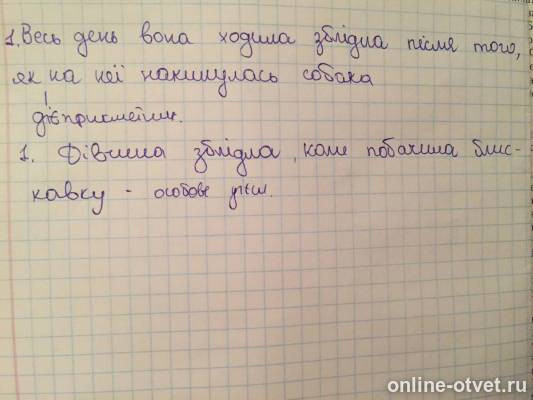 1. Весь день вона ходила зблідла після того,
як на неї накинулась собака
дієприкметник.
1. Дівчина зблідла, коли побачила блис-
кавку - особове дієсл.
online-otvet.ru